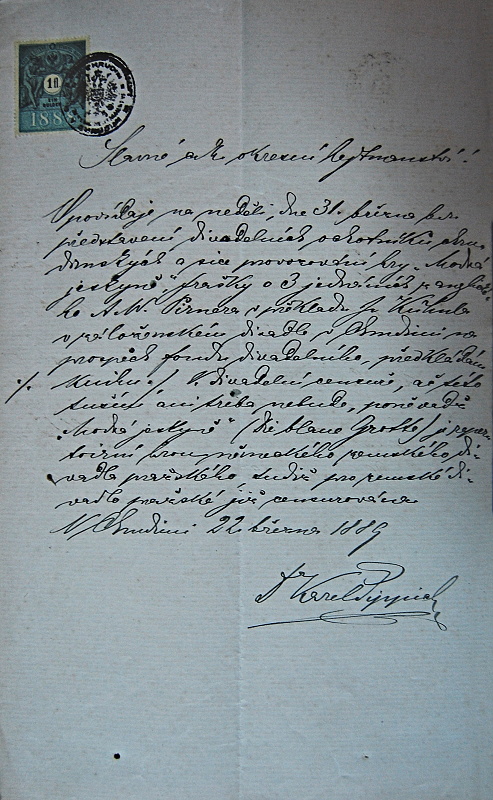 10
188
Slavné c. k. okresní hejtmanství!
Opovídaje na neděli, dne 31. března b.r.
představení divadelních ochotníků chru-
dimských a sice provozování hry „Modrá
jeskyně“, frašky o 3 jednáních z anglické-
ho A. W. Pinera v překladu J. Kühnla
v záloženském divadle v Chrudimi na
prospěch fondu divadelního, předkládám
./. knihu ./. k divadelní censuře, ač této
tuším ani třeba nebude, poněvadž
„Modrá jeskyně“ (Die blaue Grotte) je reper-
toirní hrou německého zemského di-
vadla pražského tudíž pro zemské di-
vadlo pražské již censurována.
V Chrudimi 22 března 1889
Dr Karel Pippich